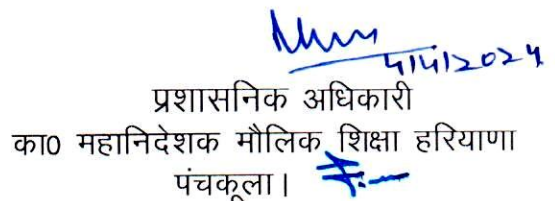 4/4/2024
प्रशासनिक अधिकारी
का0 महानिदेशक मौलिक शिक्षा हरियाणा
पंचकूला।